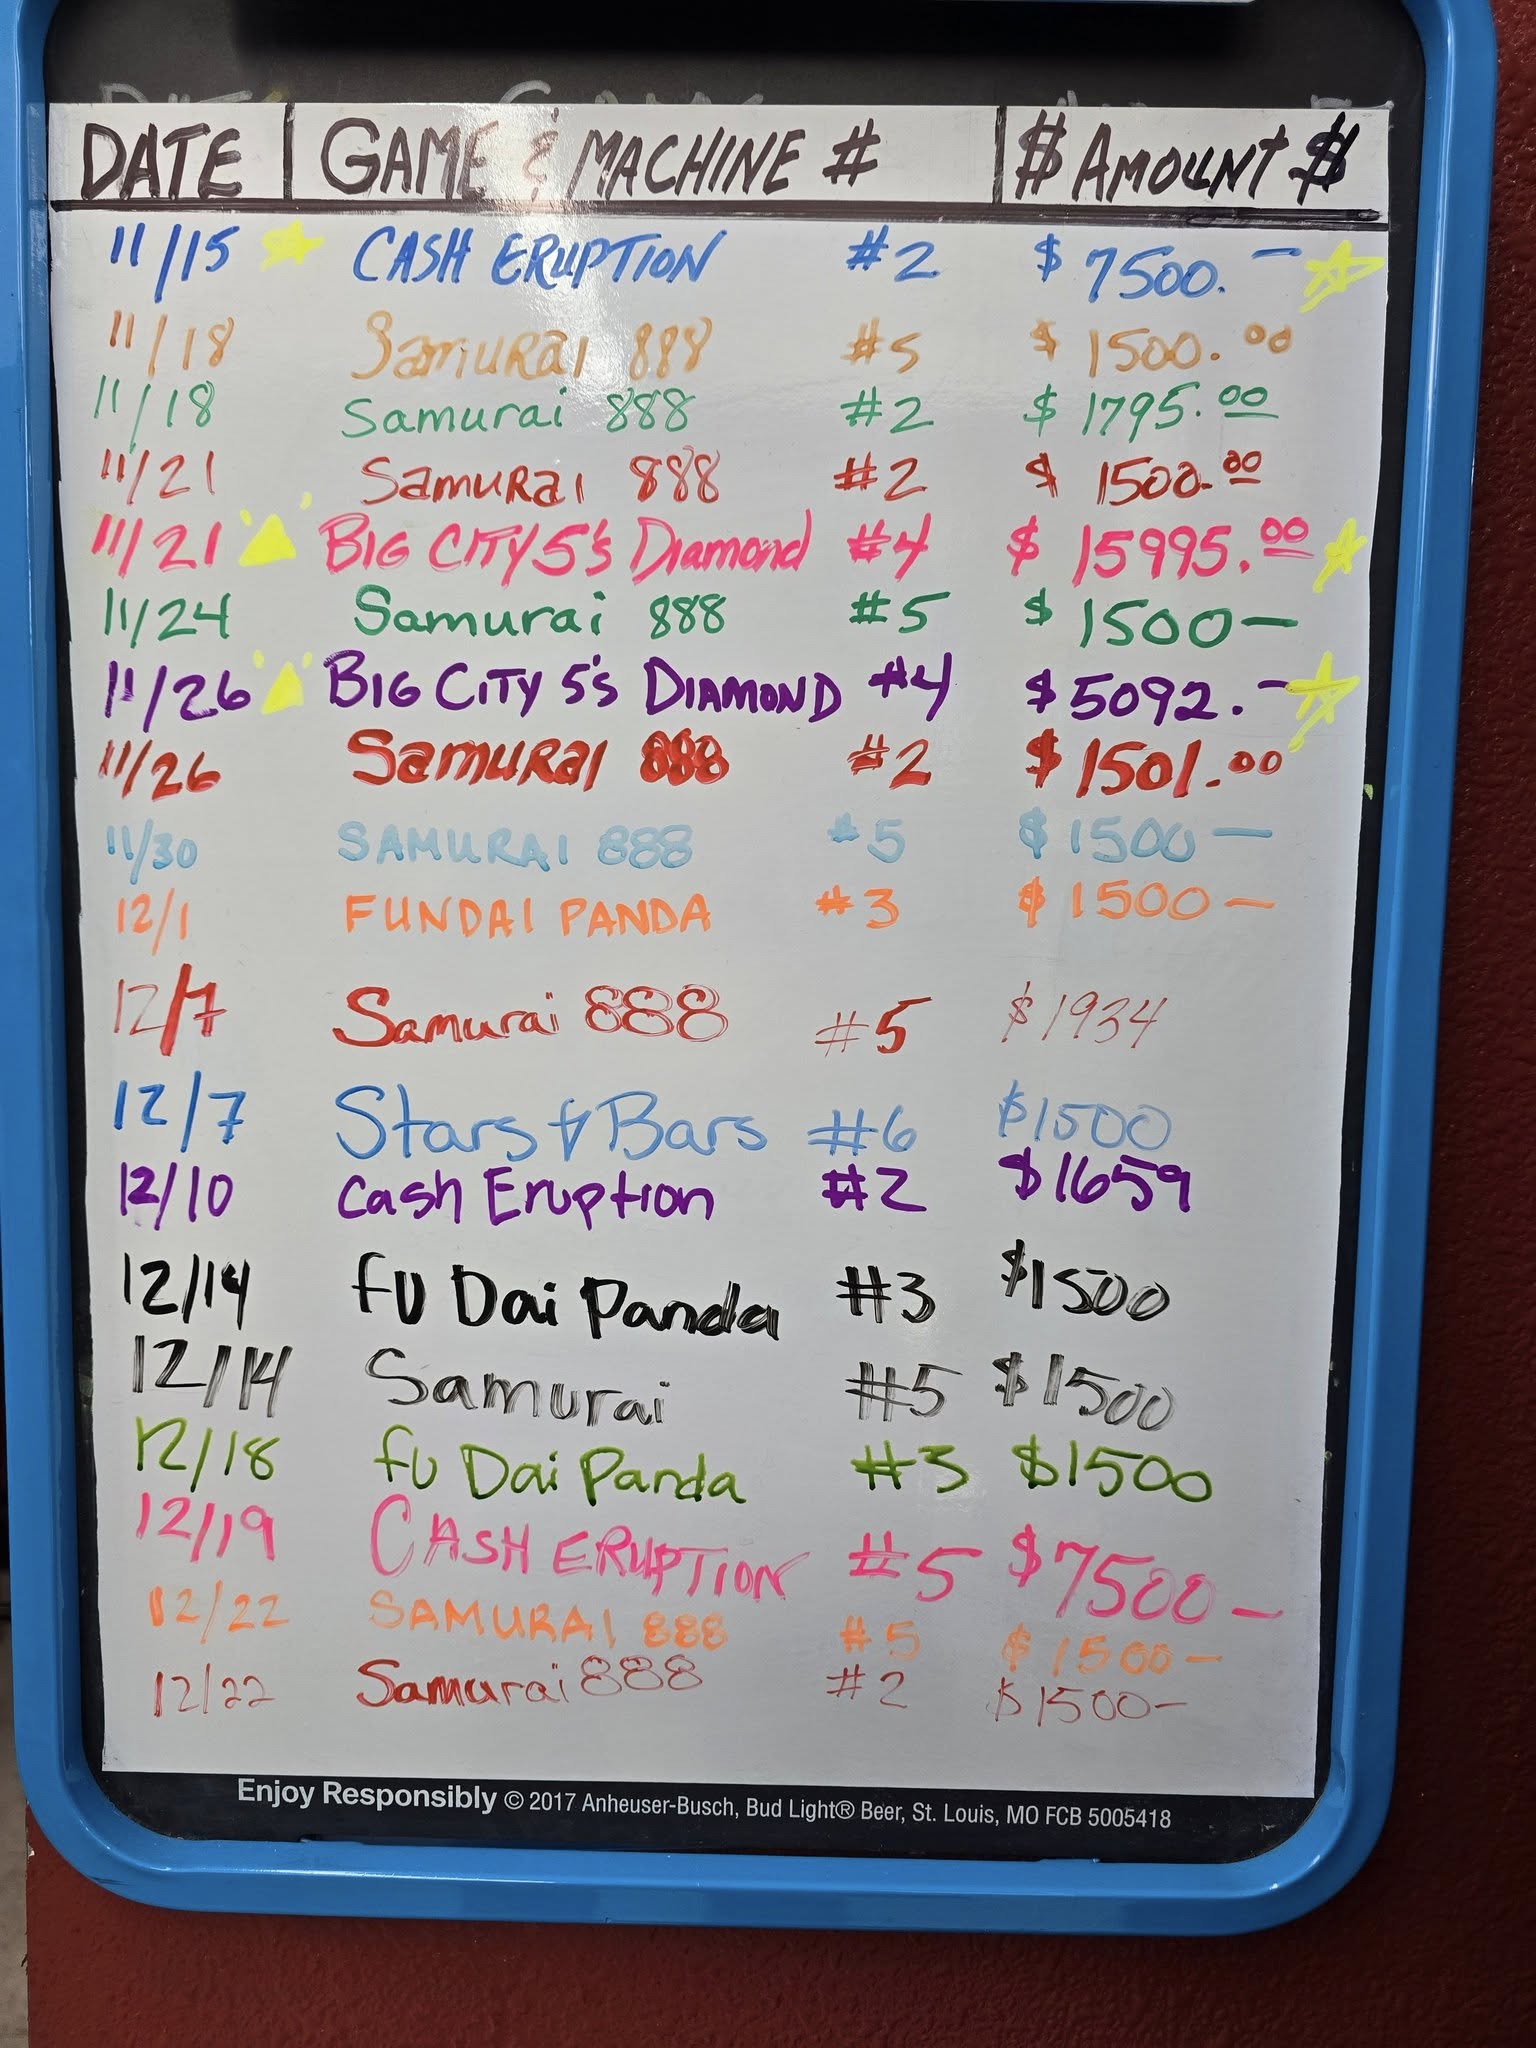 DATE | GAME & MACHINE # | $ AMOUNT $
11/15 CASH ERUPTION #2 $ 7500.—
11/18 Samurai 888 #5 $ 1500.00
11/18 Samurai 888 #2 $ 1795.00
11/21 Samurai 888 #2 $ 1500.00
11/21 BIG CITY 5's Diamond #4 $ 15995.00
11/24 Samurai 888 #5 $ 1500—
11/26 BIG CITY 5's DIAMOND #4 $ 5092.—
11/26 Samurai 888 #2 $ 1501.00
11/30 SAMURAI 888 #5 $ 1500—
12/1 FUNDAI PANDA #3 $ 1500—
12/7 Samurai 888 #5 $1934
12/7 Stars & Bars #6 $1500
12/10 Cash Eruption #2 $1659
12/14 fu Dai Panda #3 $1500
12/14 Samurai #5 $1500
12/18 fu Dai Panda #3 $1500
12/19 CASH ERUPTION #5 $7500—
12/22 SAMURAI 888 #5 $ 1500—
12/22 Samurai 888 #2 $1500—
Enjoy Responsibly © 2017 Anheuser-Busch, Bud Light® Beer, St. Louis, MO FCB 5005418